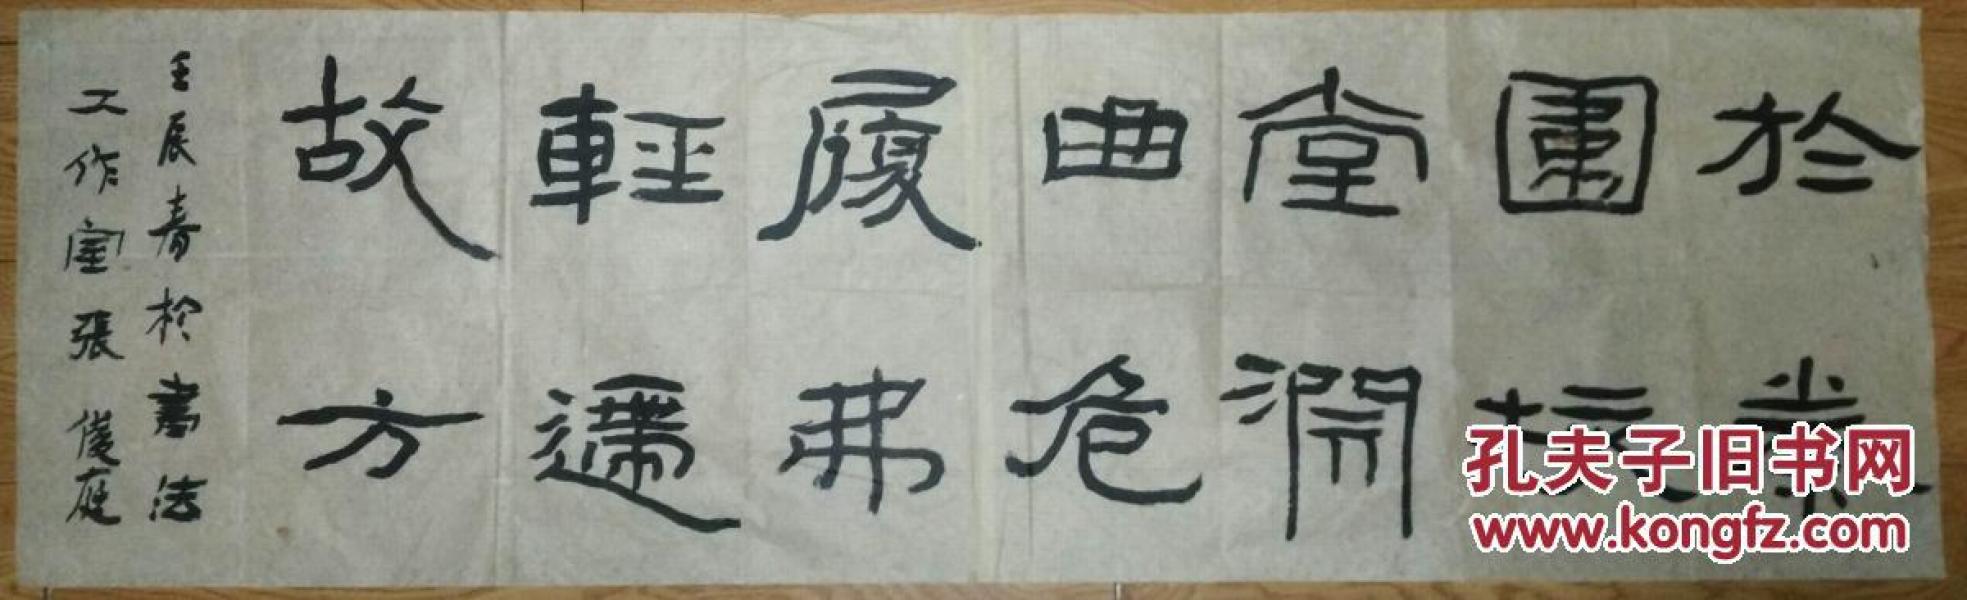 於
堂澗
曲危
履弗
輕
故方
壬辰春於書法
工作室張俊庭
孔夫子旧书网
www.kongfz.com